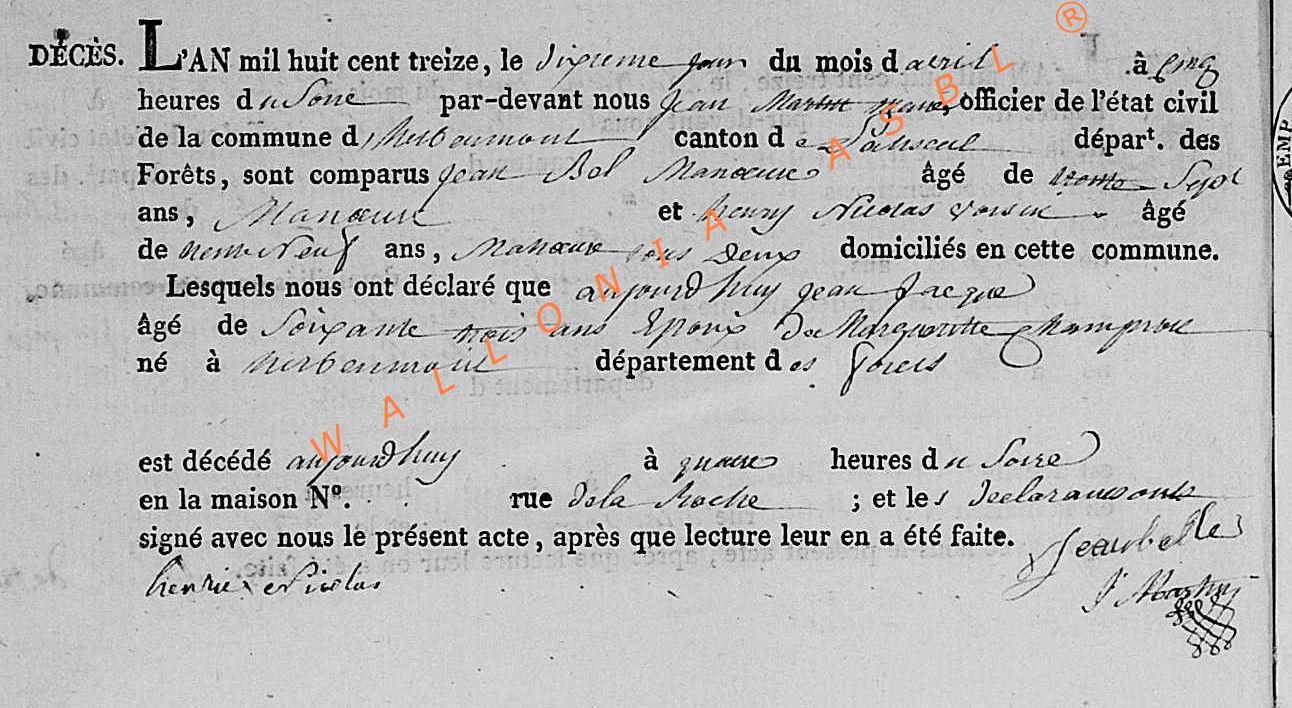 DÉCÈS. L'AN mil huit cent treize, le Sixieme jour du mois d avril à Cinq
heures du Soire par-devant nous Jean Martin maire, officier de l'état civil
de la commune d'herbeumont canton de Paliseul départ. des
Forêts, sont comparus Jean Bel Manœuve âgé de trente Sept
ans, Manœuve et henry Nicolas voisin âgé
de trente Neuf ans, Manœuve tous Deux domiciliés en cette commune.
Lesquels nous ont déclaré que aujourd huy jean jacque
âgé de Soixante trois ans Epoux De Margueritte
né à herbeumont département des forets
est décédé aujourd huy à quatre heures du Soire
en la maison No. rue dela Roche ; et les declarants ont
signé avec nous le présent acte, après que lecture leur en a été faite. Jean belle
henrie Nicolas J Martin
WALLONIA ASBL ®
EMP